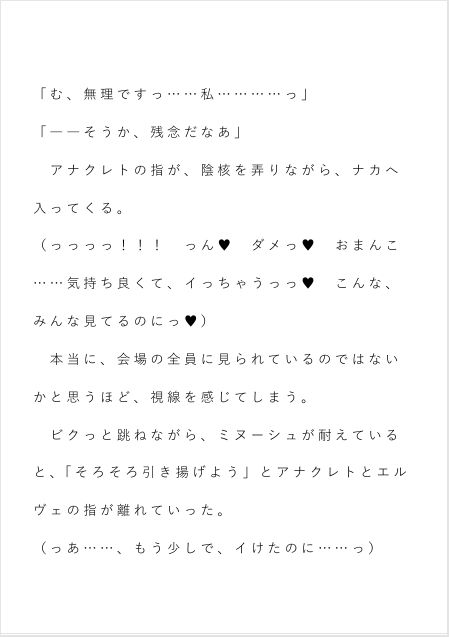 「む、無理ですっ……私…………っ」
「――そうか、残念だなあ」
　アナクレトの指が、陰核を弄りながら、ナカへ
入ってくる。
（っっっっ！！！　っん♥　ダメっ♥　おまんこ
……気持ち良くて、イっちゃうっっ♥　こんな、
みんな見てるのにっ♥）
　本当に、会場の全員に見られているのではない
かと思うほど、視線を感じてしまう。
　ビクっと跳ねながら、ミヌーシュが耐えている
と、「そろそろ引き揚げよう」とアナクレトとエル
ヴェの指が離れていった。
（っあ……、もう少しで、イけたのに……っ）